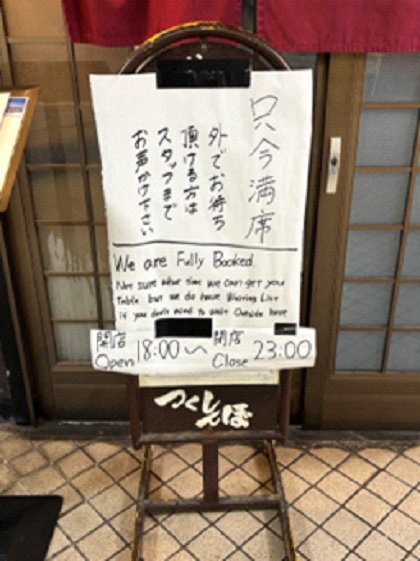 只今満席
外でお待ち
頂ける方は
スタッフまで
お声がけ下さい
We are Fully Booked
Not sure what time we can get your
table but we do have Waiting List
if you don't mind to wait Outside here
開店 18:00〜 閉店 23:00
Open Close
つくしんぼ